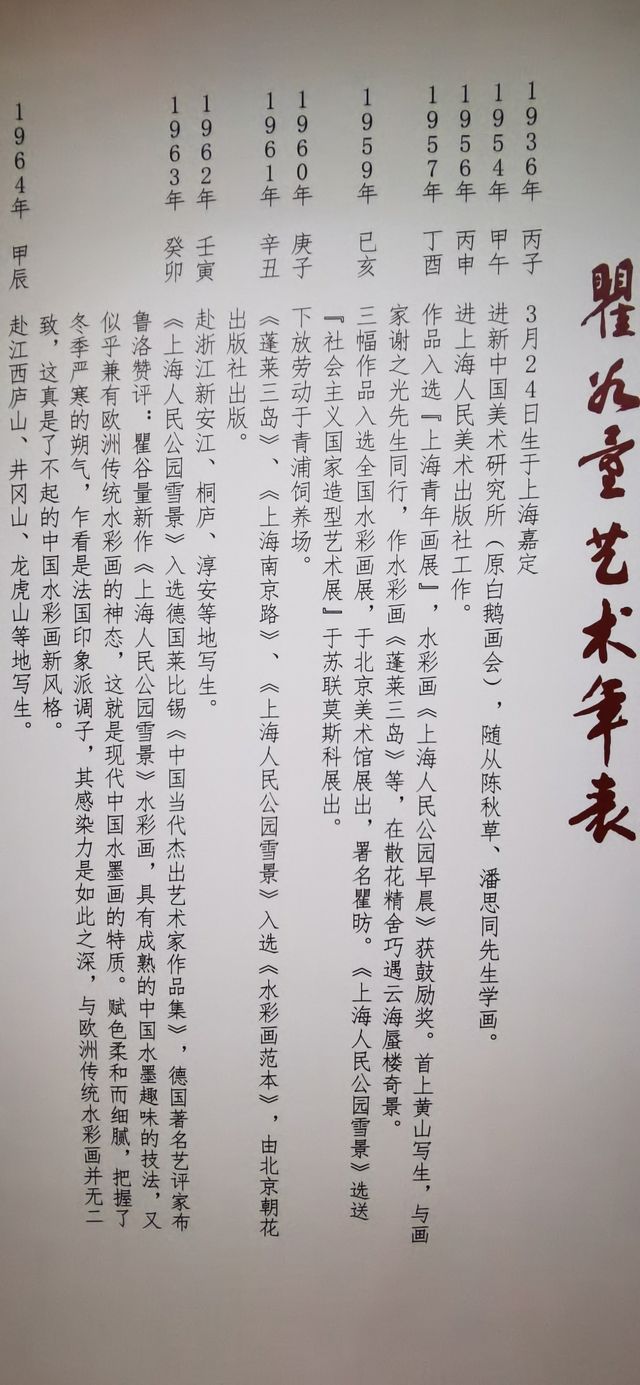 瞿谷量艺术年表
1936年 丙子 3月24日生于上海嘉定
1954年 甲午 进新中国美术研究所（原白鹅画会），随从陈秋草、潘思同先生学画。
1956年 丙申 进上海人民美术出版社工作。
1957年 丁酉 作品入选『上海青年画展』，水彩画《上海人民公园早晨》获鼓励奖。首上黄山写生，与画
家谢之光先生同行，作水彩画《蓬莱三岛》等，在散花精舍巧遇云海蜃楼奇景。
1959年 己亥 三幅作品入选全国水彩画展，于北京美术馆展出，署名瞿昉。《上海人民公园雪景》选送
『社会主义国家造型艺术展』于苏联莫斯科展出。
1960年 庚子 下放劳动于青浦饲养场。
1961年 辛丑 《蓬莱三岛》、《上海南京路》、《上海人民公园雪景》入选《水彩画范本》，由北京朝花
出版社出版。
1962年 壬寅 赴浙江新安江、桐庐、淳安等地写生。
1963年 癸卯 《上海人民公园雪景》入选德国莱比锡《中国当代杰出艺术家作品集》，德国著名艺评家布
鲁洛赞评：瞿谷量新作《上海人民公园雪景》水彩画，具有成熟的中国水墨趣味的技法，又
似乎兼有欧洲传统水彩画的神态，这就是现代中国水墨画的特质。赋色柔和而细腻，把握了
冬季严寒的朔气，乍看是法国印象派调子，其感染力是如此之深，与欧洲传统水彩画并无二
致，这真是了不起的中国水彩画新风格。
1964年 甲辰 赴江西庐山、井冈山、龙虎山等地写生。